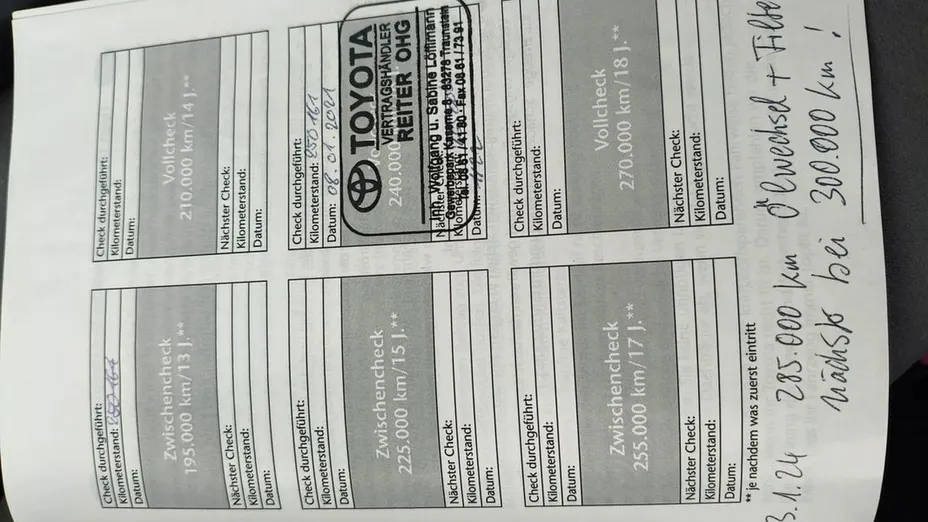 Check durchgeführt:
Kilometerstand: 250 161
Datum:
Zwischencheck
195.000 km/13 J.**
Nächster Check:
Kilometerstand:
Datum:
Check durchgeführt:
Kilometerstand:
Datum:
Vollcheck
210.000 km/14 J.**
Nächster Check:
Kilometerstand:
Datum:
Check durchgeführt:
Kilometerstand:
Datum:
Zwischencheck
225.000 km/15 J.**
Nächster Check:
Kilometerstand:
Datum:
Check durchgeführt:
Kilometerstand: 250 161
Datum: 08.01.2021
TOYOTA
VERTRAGSHÄNDLER
REITER OHG
240.000
Inh. Wolfgang u. Sabine Löfflmann
Nächster Check:
Gewerbepark Kaserne 8 · 83278 Traunstein
Kilometerstand:
Tel. 08 61 / 41 80 · Fax 08 61 / 73 91
Datum:
Check durchgeführt:
Kilometerstand:
Datum:
Zwischencheck
255.000 km/17 J.**
Nächster Check:
Kilometerstand:
Datum:
Check durchgeführt:
Kilometerstand:
Datum:
Vollcheck
270.000 km/18 J.**
Nächster Check:
Kilometerstand:
Datum:
** je nachdem was zuerst eintritt
3.1.24 285.000 km Ölwechsel + Filte
nächste bei 300.000 km!